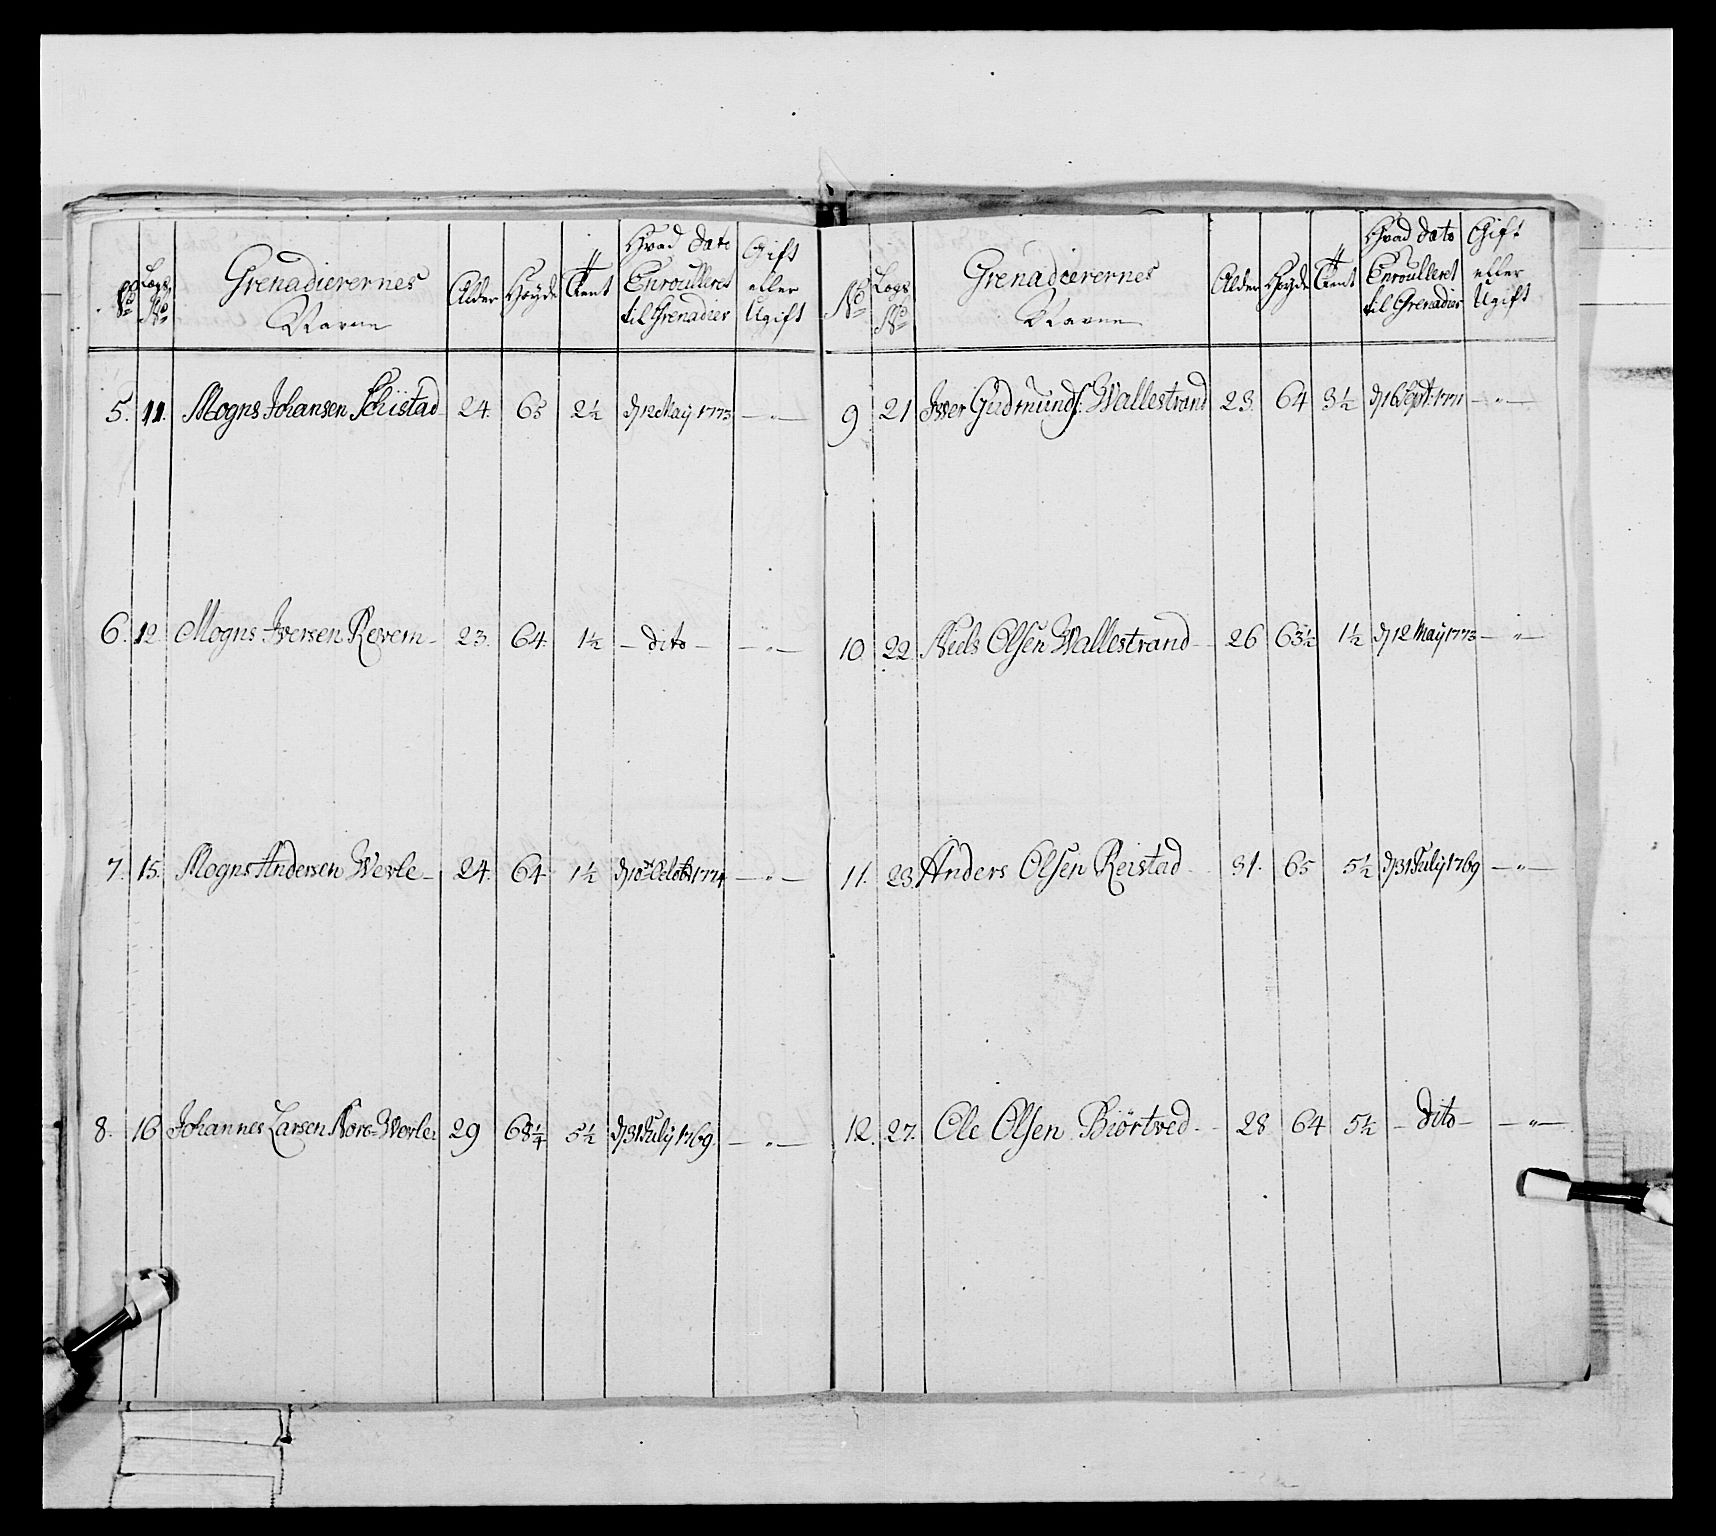 No
Logs No
Grenadierernes Navne
Alder
Høyde
Tient
Hvad Dato Enroulleret til Grenadier
Gift eller Ugift
5. 11. Mogns Johansen Schistad 24. 65 2½ d 12 May 1773 — " —
6. 12. Mogns Iversen Revem 23. 64. 1½ — dito — — " —
7. 15. Mogns Andersen Werle 24. 64. 1½ 1774 — " —
8. 16 Johannes Larsen Nore-Werle 29 63¼ 5½ d 31 July 1769. — " —
No
Logs No
Grenadierernes Navne
Alder
Høyde
Tient
Hvad Dato Enroulleret til Grenadier
Gift eller Ugift
9 21 Iver Gudmunds: Wallestrand 23. 64 3½ d 16 Sept: 1771 — " —
10 22 Niels Olsen Wallestrand 26 63½ 1½ d 12 May 1773 — " —
11. 23. Anders Olsen Reistad 31. 65 5½ d 31 July 1769 — " —
12. 27. Ole Olsen Biørtved 28 64 5½ — dito — — " —